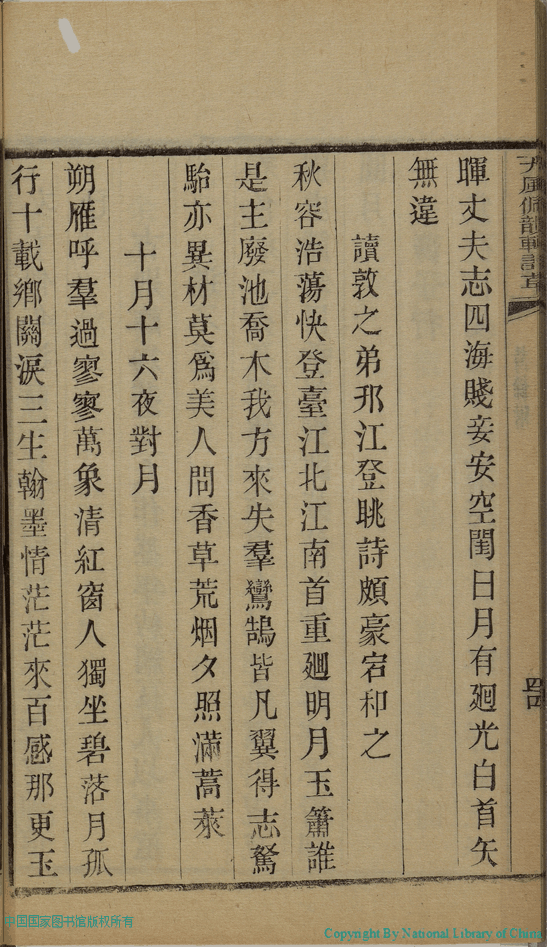 暉丈夫志四海賤妾安空閨日月有廻光白首矢
無違
讀敦之弟邗江登眺詩頗豪宕和之
秋容浩蕩快登臺江北江南首重廻明月玉簫誰
是主廢池喬木我方來失羣鸞鵠皆凡翼得志駑
駘亦異材莫爲美人問香草荒烟夕照滿蒿萊
十月十六夜對月
朔雁呼羣過寥寥萬象清紅窗人獨坐碧落月孤
行十載鄉關淚三生翰墨情茫茫來百感那更玉
中国国家图书馆版权所有
Copyright By National Library of China